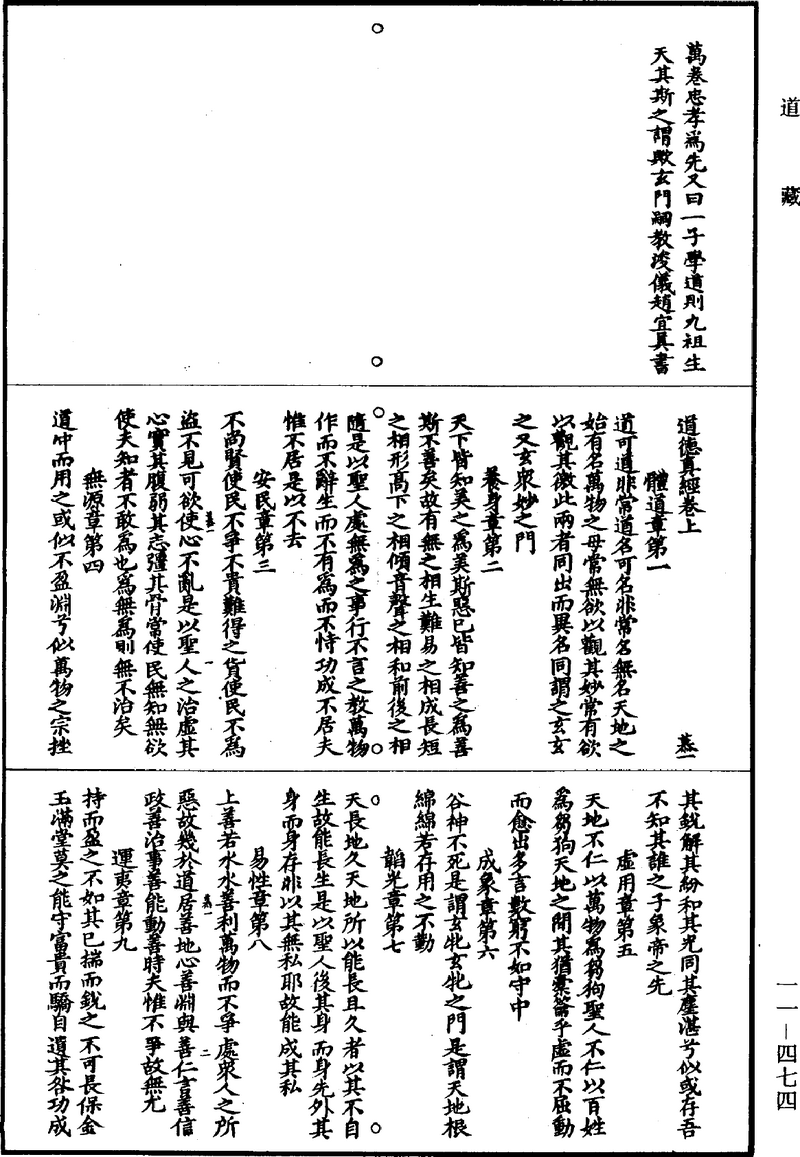 道藏
萬卷忠孝爲先又曰一子學道則九祖生
天其斯之謂歟玄門嗣教浚儀趙宜眞書
道德眞經卷上
慕一
體道章第一
道可道非常道名可名非常名無名天地之
始有名萬物之母常無欲以觀其妙常有欲
以觀其徼此兩者同出而異名同謂之玄玄
之又玄衆妙之門
養身章第二
天下皆知美之爲美斯惡已皆知善之爲善
斯不善矣故有無之相生難易之相成長短
之相形高下之相傾音聲之相和前後之相
隨是以聖人處無爲之事行不言之教萬物
作而不辭生而不有爲而不恃功成不居夫
惟不居是以不去
安民章第三
不尚賢使民不爭不貴難得之貨使民不爲
慕一 一
盜不見可欲使心不亂是以聖人之治虛其
心實其腹弱其志彊其骨常使民無知無欲
使夫知者不敢爲也爲無爲則無不治矣
無源章第四
道冲而用之或似不盈淵兮似萬物之宗挫
其銳解其紛和其光同其塵湛兮似或存吾
不知其誰之子象帝之先
虛用章第五
天地不仁以萬物爲芻狗聖人不仁以百姓
爲芻狗天地之間其猶橐籥乎虛而不屈動
而愈出多言數窮不如守中
成象章第六
谷神不死是謂玄牝玄牝之門是謂天地根
綿綿若存用之不勤
韜光章第七
天長地久天地所以能長且久者以其不自
生故能長生是以聖人後其身而身先外其
身而身存非以其無私耶故能成其私
易性章第八
上善若水水善利萬物而不爭處衆人之所
慕一 二
惡故幾於道居善地心善淵與善仁言善信
政善治事善能動善時夫惟不爭故無尤
運夷章第九
持而盈之不如其已揣而銳之不可長保金
玉滿堂莫之能守富貴而驕自遺其咎功成
一一—四七四